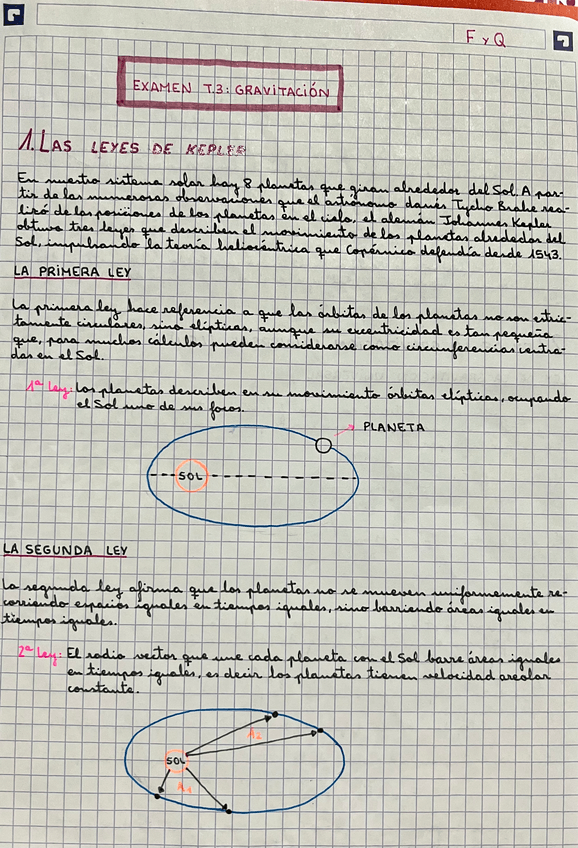 F y Q
EXAMEN T.3: GRAVITACIÓN
1. LAS LEYES DE KEPLER
En nuestro sistema solar hay 8 planetas que giran alrededor del Sol. A par-
tir de las numerosas observaciones que el astrónomo danés Tycho Brahe rea-
lizó de las posiciones de los planetas en el cielo, el alemán Johannes Kepler
obtuvo tres leyes que describen el movimiento de los planetas alrededor del
Sol, impulsando la teoría heliocéntrica que Copérnico defendía desde 1543.
LA PRIMERA LEY
La primera ley hace referencia a que las órbitas de los planetas no son estric-
tamente circulares, sino elípticas, aunque su excentricidad es tan pequeña
que, para muchos cálculos pueden considerarse como circunferencias centra-
das en el Sol.
1ª Ley: Los planetas describen en su movimiento órbitas elípticas, ocupando
el Sol uno de sus focos.
PLANETA
SOL
LA SEGUNDA LEY
La segunda ley afirma que los planetas no se mueven uniformemente re-
corriendo espacios iguales en tiempos iguales, sino barriendo áreas iguales en
tiempos iguales.
2ª Ley: El radio vector que une cada planeta con el Sol barre áreas iguales
en tiempos iguales, es decir los planetas tienen velocidad areolar
constante.
A2
SOL
A1